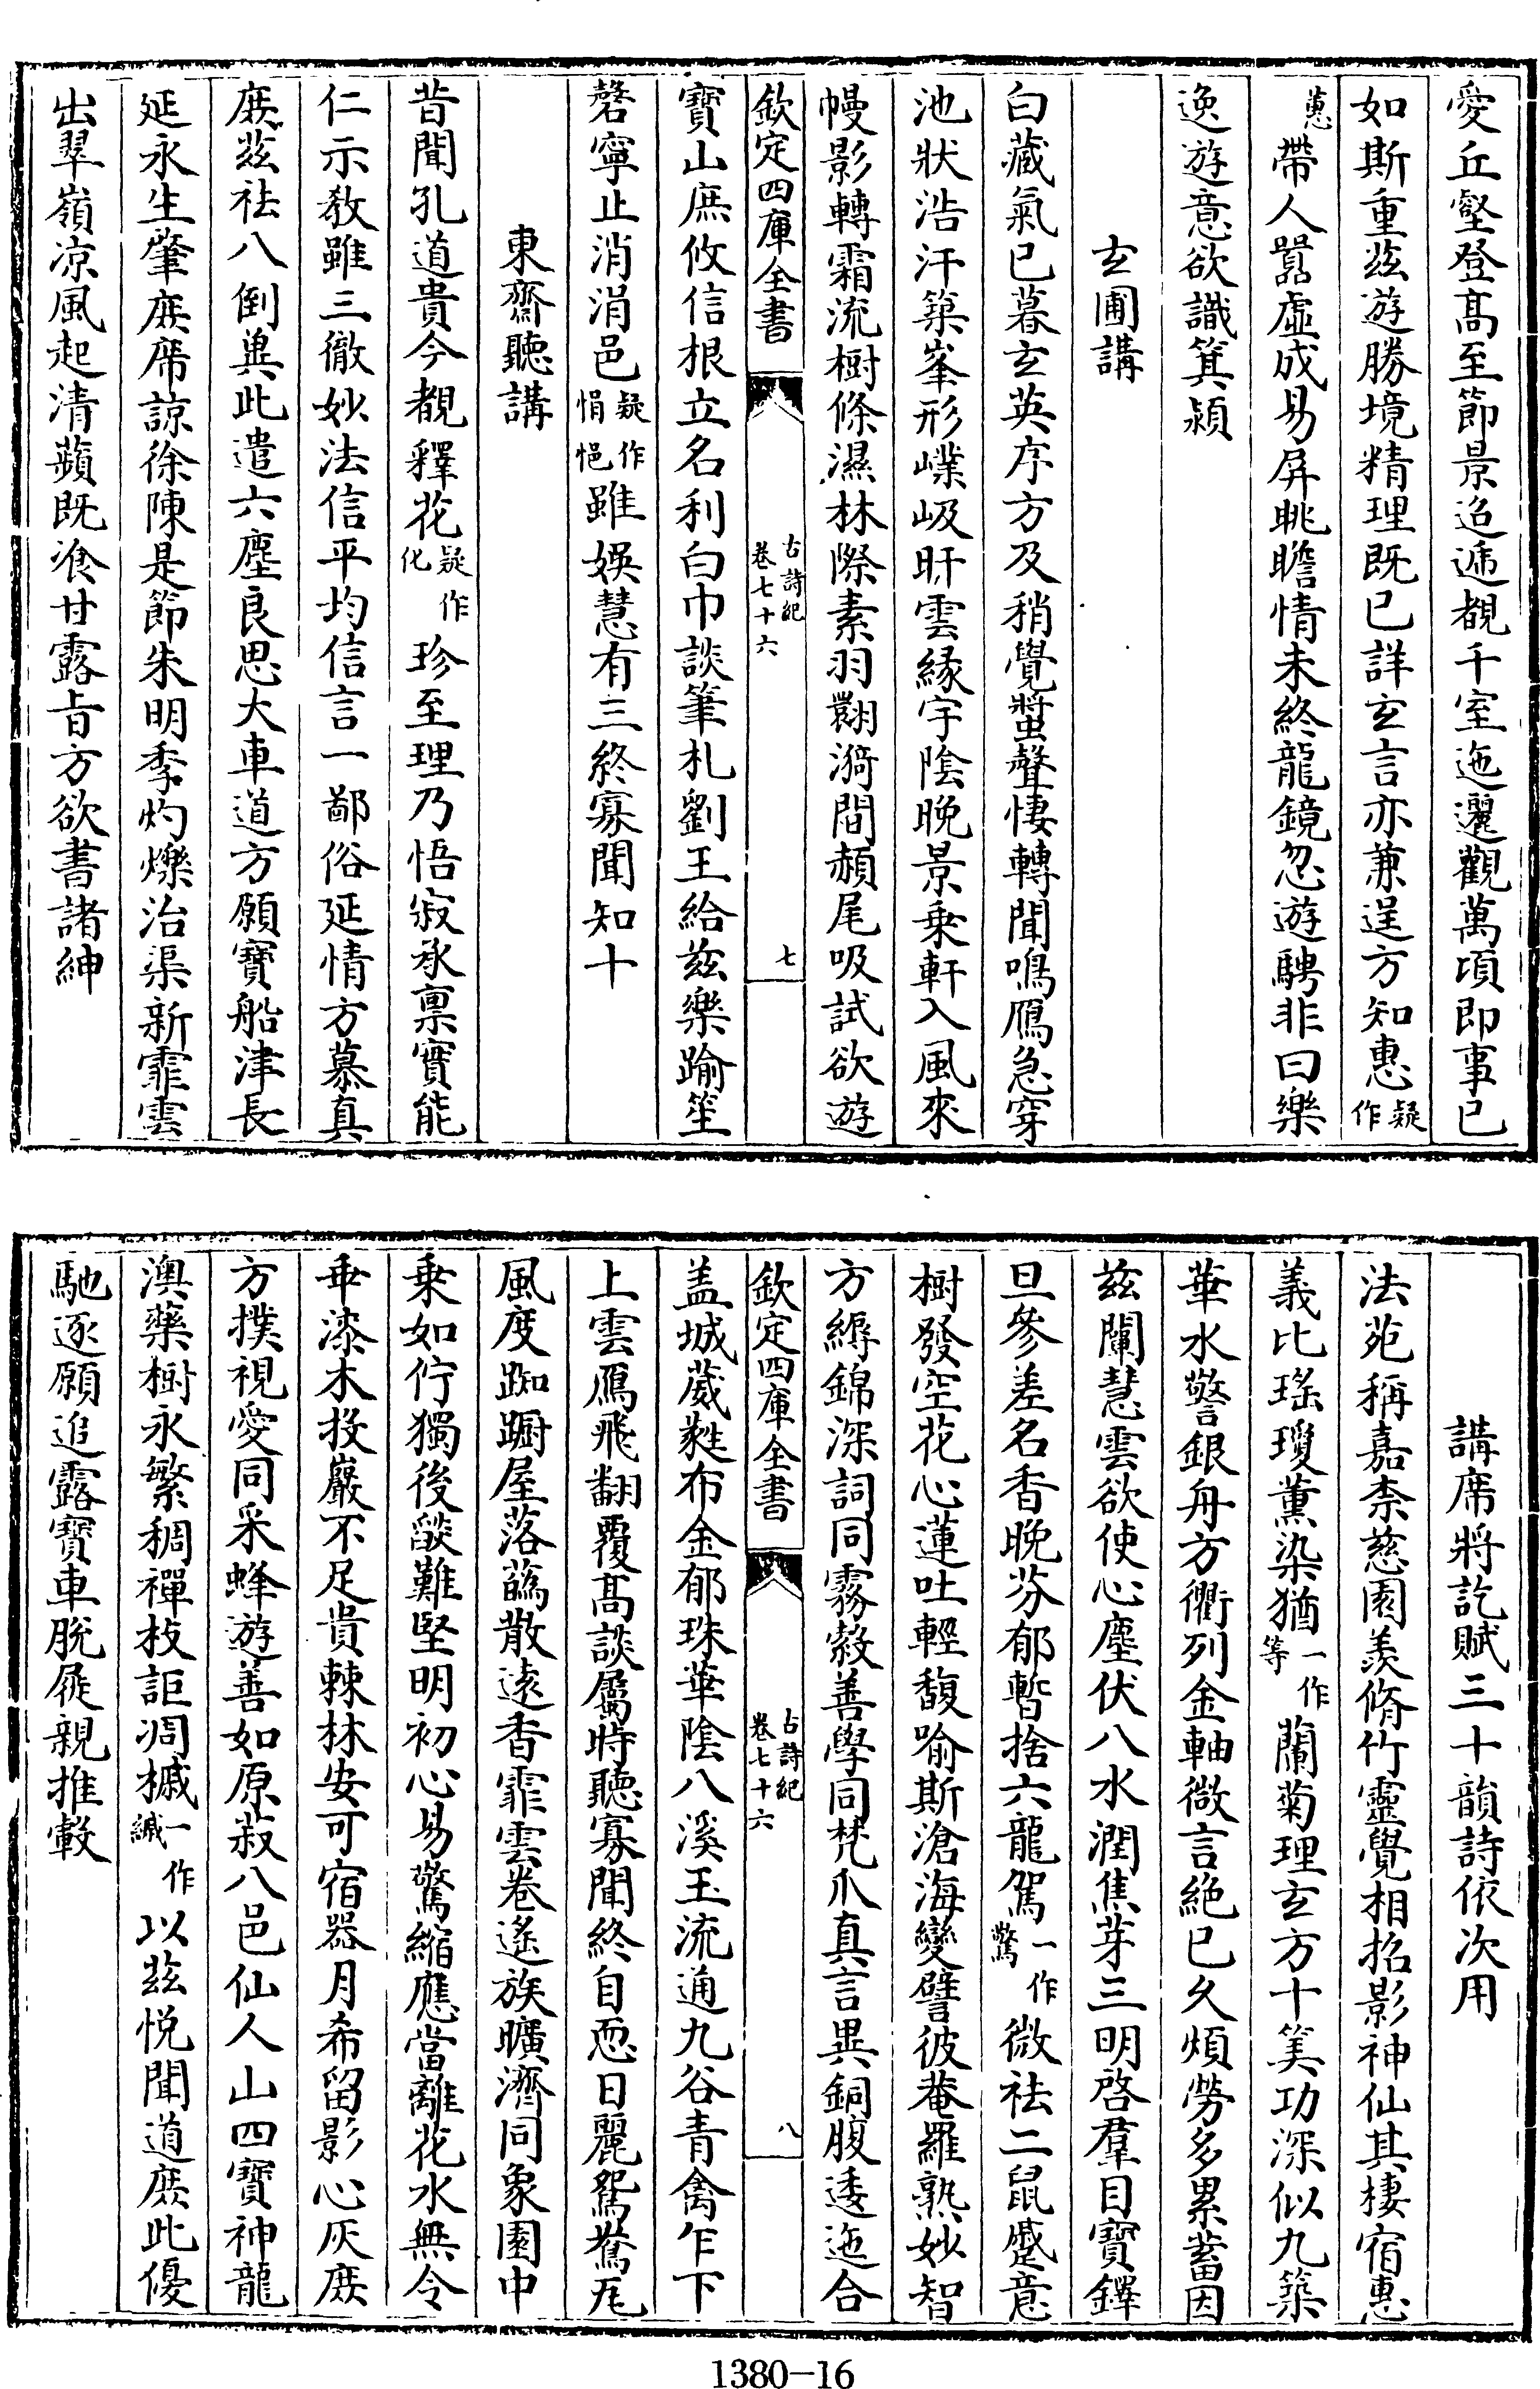 愛丘壑登髙至節景迢遞覩千室迤邐觀萬頃即事已
如斯重兹遊勝境精理既已詳玄言亦兼逞方知惠疑作
蕙帶人嚣虛成易屏眺瞻情未終龍鏡忽遊騁非曰樂
逸遊意欲識箕潁
玄圃講
白藏氣已暮玄英序方及稍覺螿聲悽轉聞鳴鴈急穿
池狀浩汗築峯形嶫岌旰雲緣宇隂晚景乗軒入風來
幔影轉霜流樹條濕林際素羽翾漪間赬尾吸試欲遊
欽定四庫全書
古詩紀
卷七十六
七
寳山庶攸信根立名利白巾談筆札劉王給兹樂踰笙
磬寧止消涓邑疑作悁悒雖娛慧有三終寡聞知十
東齋聽講
昔聞孔道貴今覩釋花疑作化珍至理乃悟寂承禀實能
仁示敎雖三徹妙法信平均信言一鄙俗延情方慕真
庶兹祛八倒冀此遣六塵良思大車道方願寶船津長
延永生肇庶席諒徐陳是節朱明季灼爍治渠新霏雲
出翠嶺涼風起清蘋既飡甘露㫖方欲書諸紳
講席將訖賦三十韻詩依次用
法苑稱嘉柰慈園羨脩竹靈覺相招影神仙其棲宿惠
義比瑤瓊薫染猶一作等蘭菊理玄方十筭功深似九築
華水警銀舟方衢列金軸微言絶已久煩勞多累蓄因
兹闡慧雲欲使心塵伏八水潤焦芽三明啓羣目寶鐸
旦參差名香晚芬郁暫捨六龍駕一作驚微祛二鼠蹙意
樹發空花心蓮吐輕馥喻斯滄海變譬彼菴羅熟妙智
方縟錦深詞同霧縠善學同梵爪真言異銅腹逶迤合
欽定四庫全書
古詩紀
卷七十六
八
盖城葳蕤布金郁珠華隂八溪玉流通九谷青禽乍下
上雲鴈飛翻覆髙談屬時聽寡聞終自恧日麗鴛鴦瓦
風度踟躕屋落蘤散遠香霏雲卷遙族曠濟同象園中
乗如佇獨後燄難堅明初心易驚縮應當離花水無令
乖漆木投巖不足貴棘林安可宿器月希留影心灰庶
方撲視愛同采蜂遊善如原菽八邑仙人山四寶神龍
澳藥樹永繁稠禪枝詎凋槭一作縬以兹悦聞道庶此優
馳逐願追露寶車脫屣親推轂
1380-16